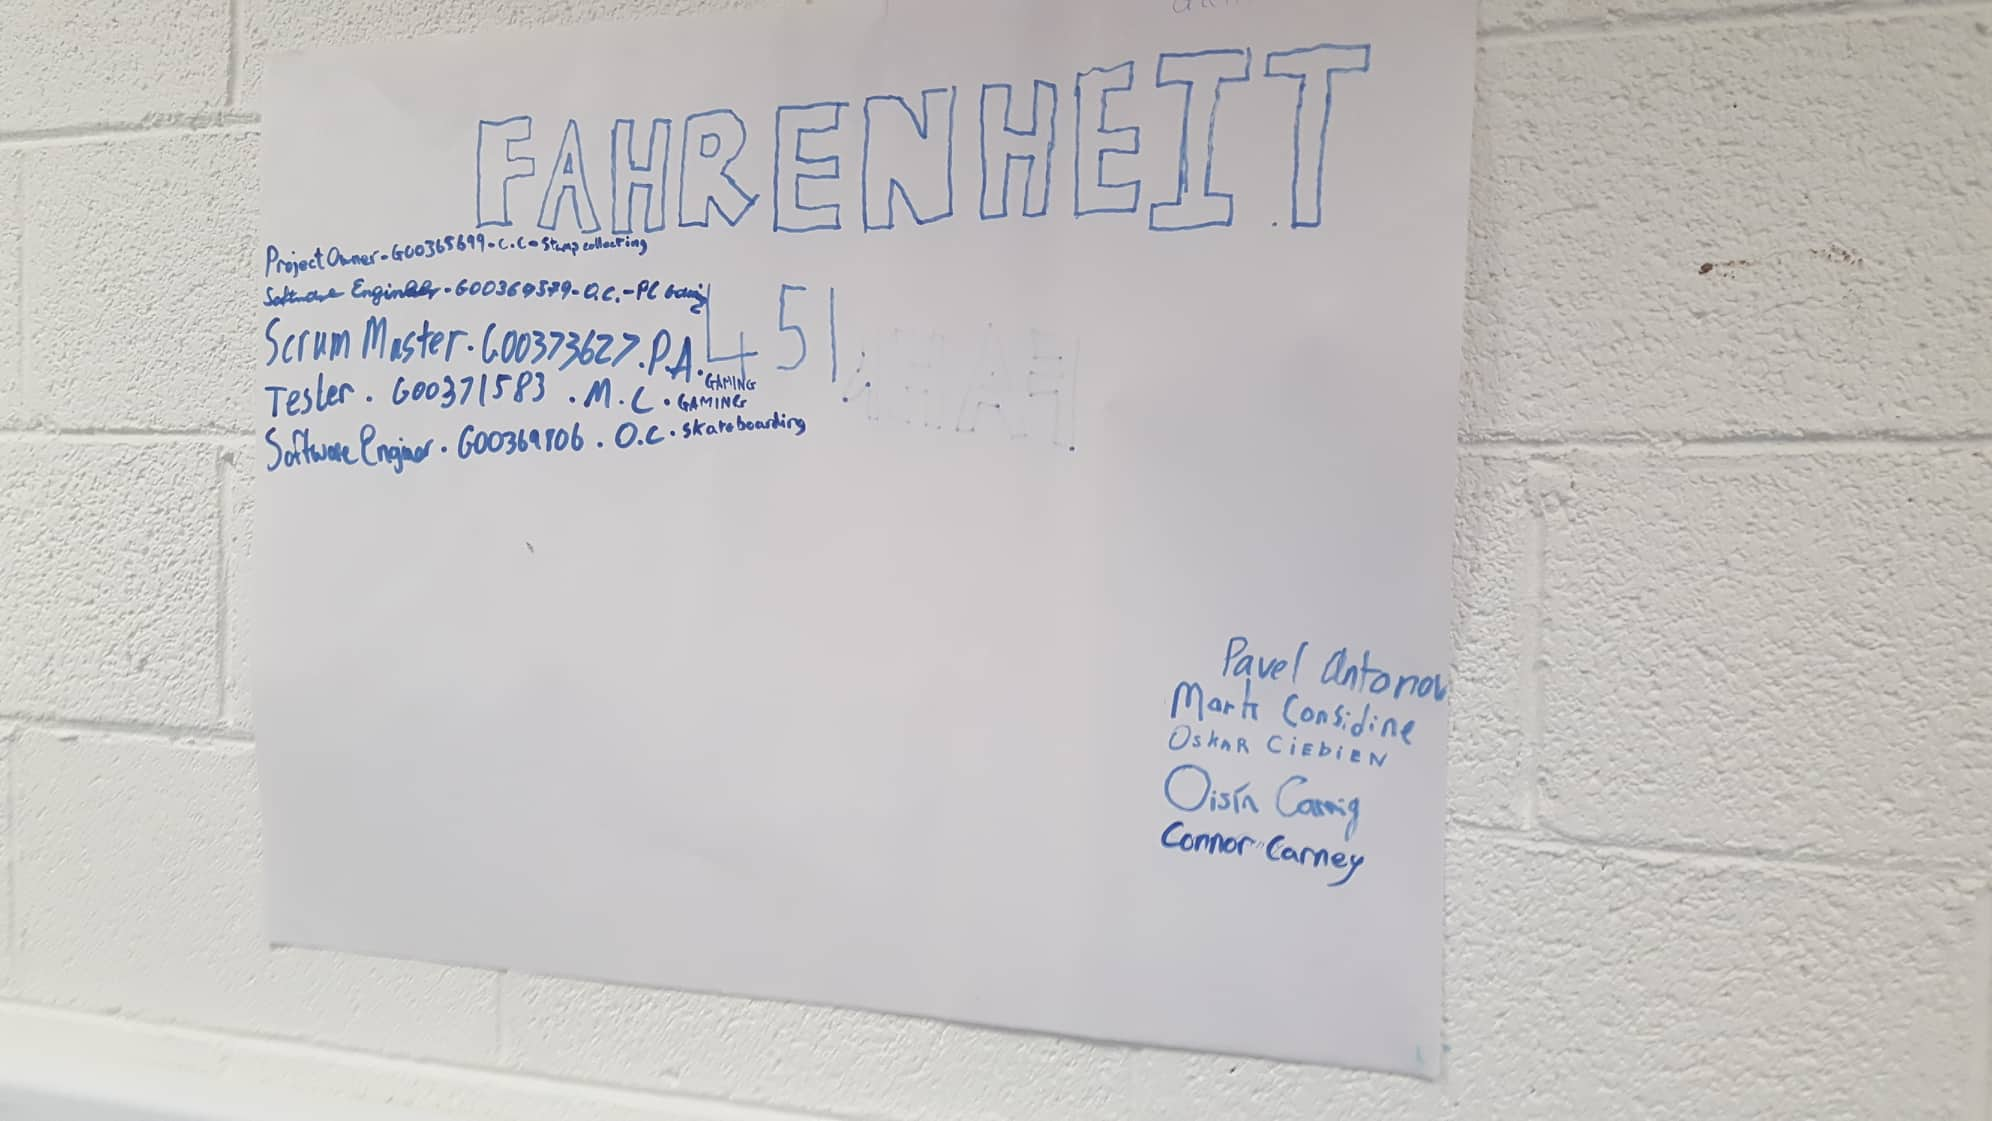 FAHRENHEIT
451
Project Owner - G00365699 - C.C - Stamp collecting
Software Engineer - G00369579 - O.C. - PC Gaming
Scrum Master . G00373627 . P.A. GAMING
Tester . G00371583 . M.C . GAMING
Software Engineer . G00369806 . O.C . Skateboarding
Pavel Antonov
Mark Considine
OSKAR CIEBIEN
Oisín
Connor Carney